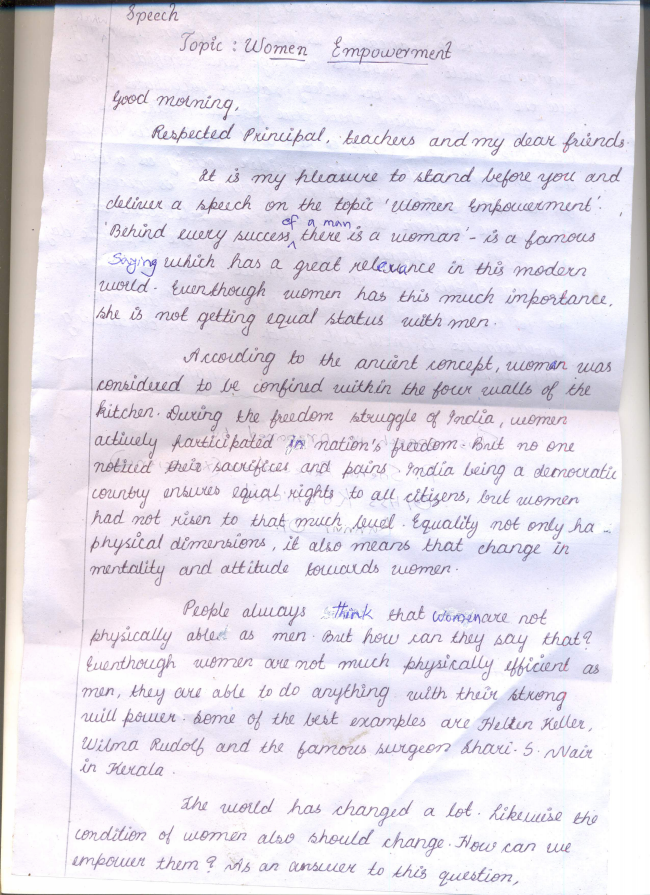 Speech
Topic : Women Empowerment
Good morning,
Respected Principal, teachers and my dear friends.
It is my pleasure to stand before you and
deliver a speech on the topic 'Women Empowerment'.
'Behind every success of a man there is a woman' - is a famous
Saying which has a great relevance in this modern
world. Eventhough women has this much importance,
she is not getting equal status with men.
According to the ancient concept, woman was
considered to be confined within the four walls of the
kitchen. During the freedom struggle of India, women
actively participated in nation's freedom. But no one
noticed their sacrifices and pains. India being a democratic
country ensures equal rights to all citizens, but women
had not risen to that much level. Equality not only ha
physical dimensions, it also means that change in
mentality and attitude towards women.
People always think that women are not
physically abled as men. But how can they say that?
Eventhough women are not much physically efficient as
men, they are able to do anything with their strong
will power. Some of the best examples are Hellen Keller,
Wilma Rudolf and the famous surgeon Shari. S. Nair
in Kerala.
The world has changed a lot. Likewise the
condition of women also should change. How can we
empower them? As an answer to this question,